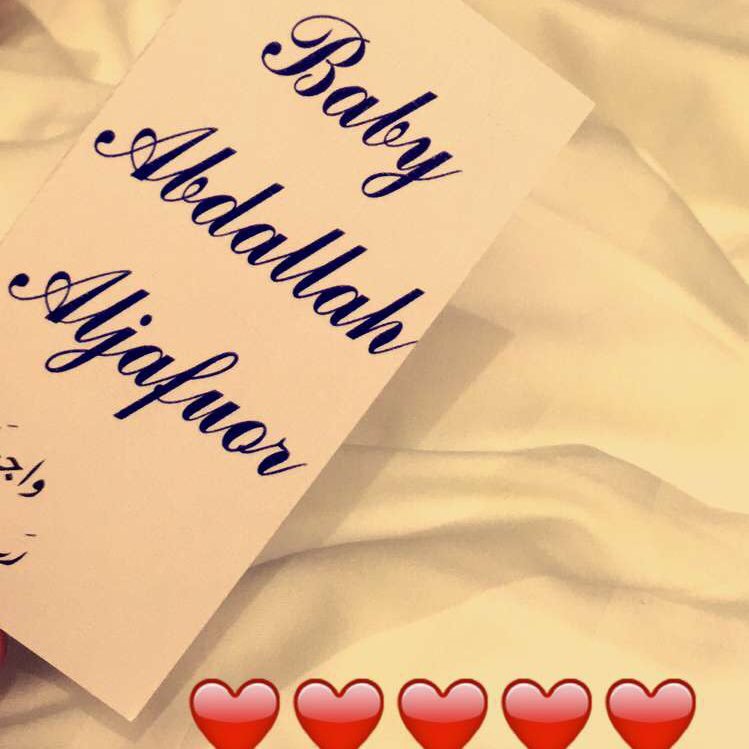 Baby
Abdallah
Aljafuor